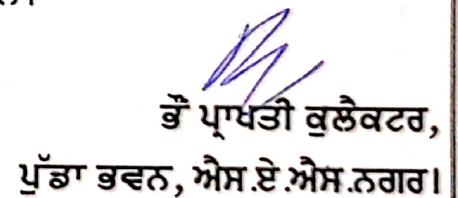 ਭੌਂ ਪ੍ਰਾਪਤੀ ਕੁਲੈਕਟਰ,
ਪੁੱਡਾ ਭਵਨ, ਐਸ.ਏ.ਐਸ.ਨਗਰ।